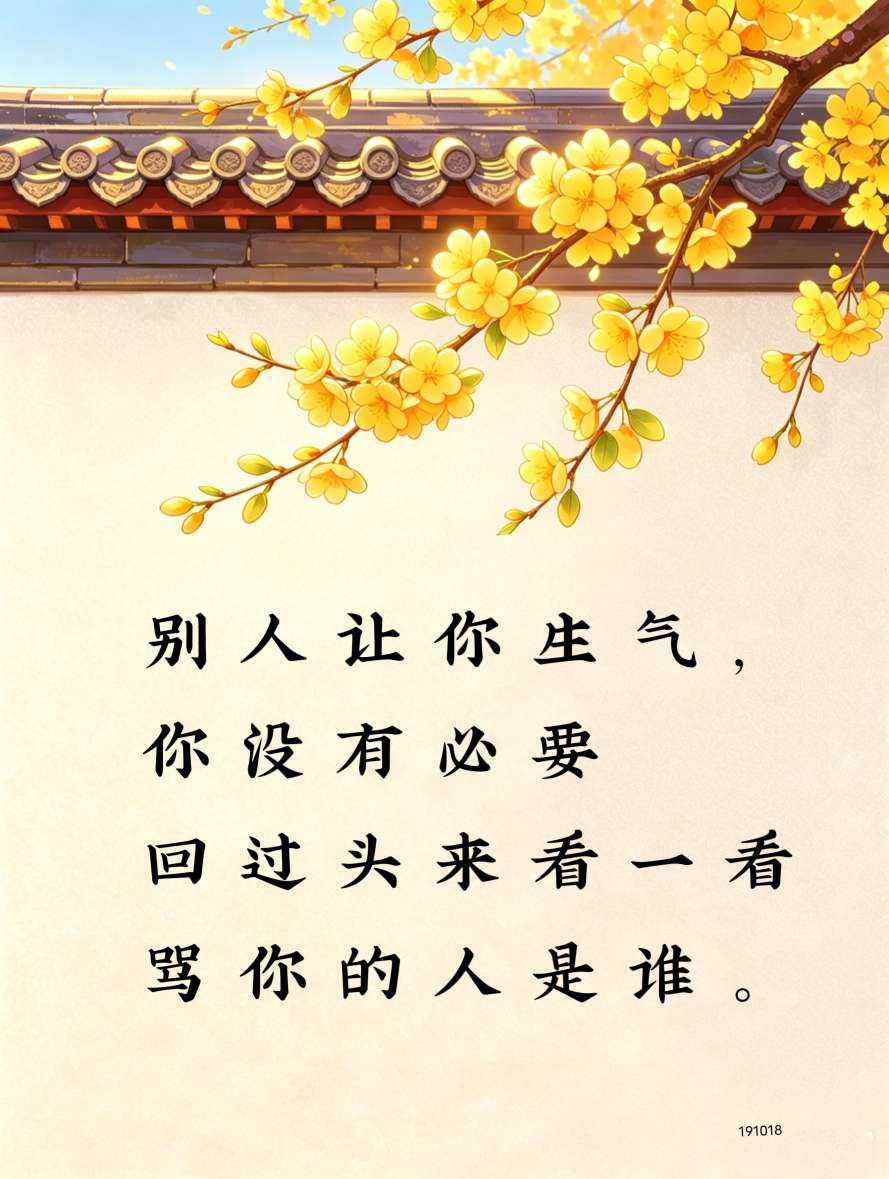 别人让你生气，
你没有必要
回过头来看一看
骂你的人是谁。
191018